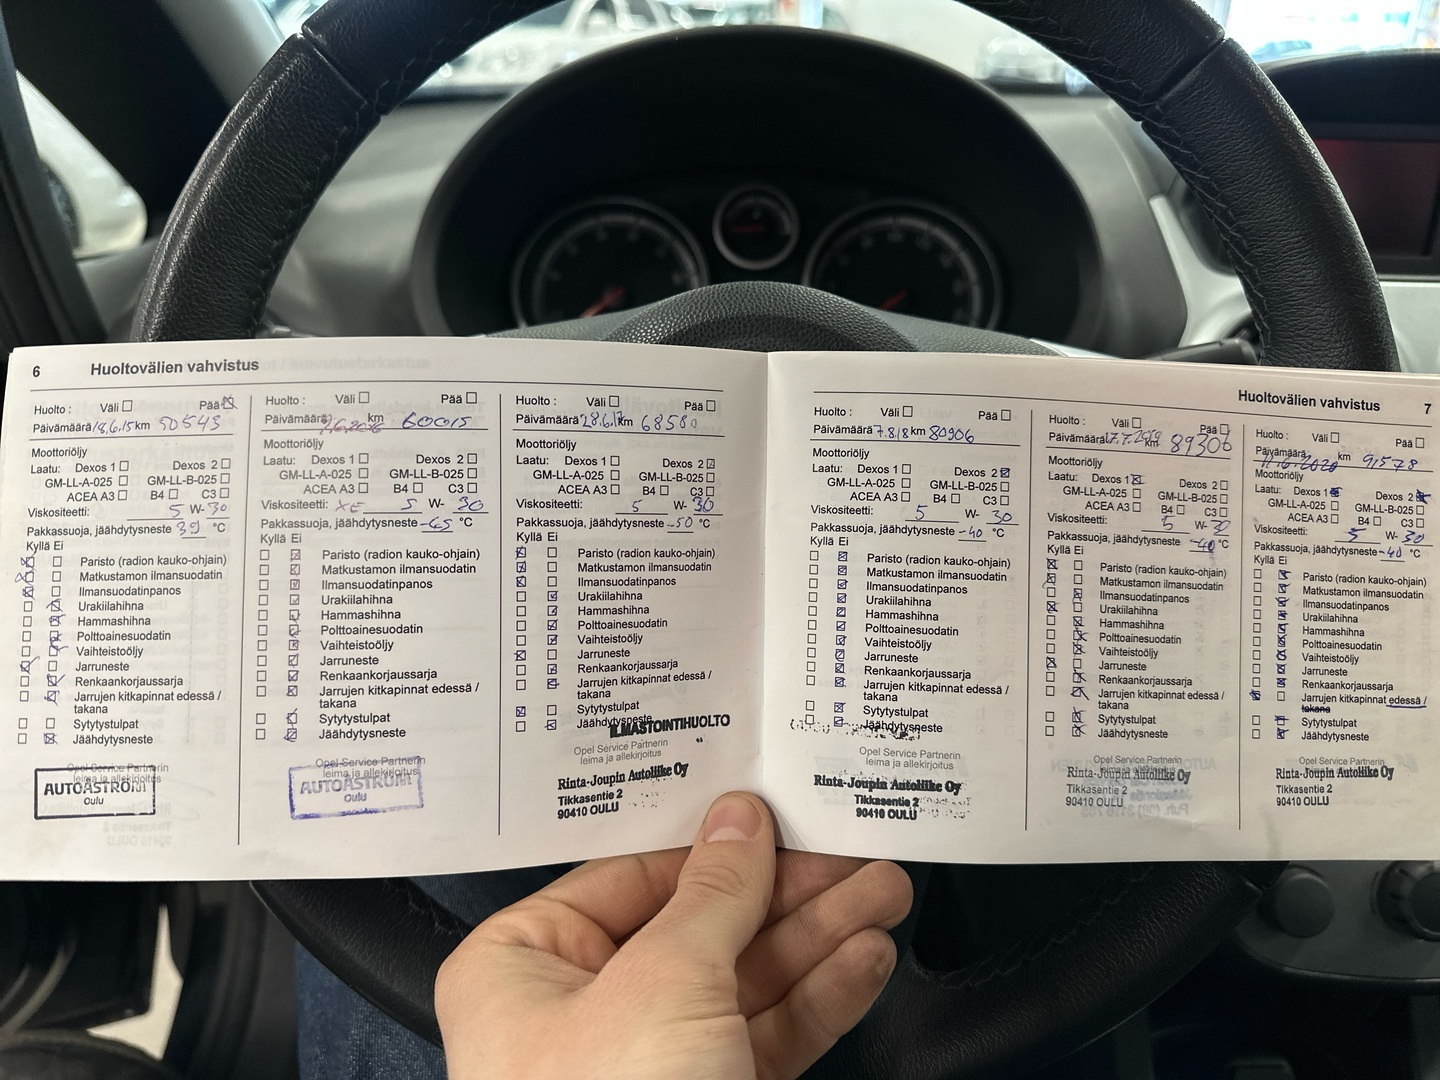 6 Huoltovälien vahvistus
Huolto: Väli Pää
Päivämäärä 18.6.15 km 50543
Moottoriöljy
Laatu: Dexos 1 Dexos 2
GM-LL-A-025 GM-LL-B-025
ACEA A3 B4 C3
Viskositeetti: 5 W- 30
Pakkassuoja, jäähdytysneste 39 °C
Kyllä Ei
Paristo (radion kauko-ohjain)
Matkustamon ilmansuodatin
Ilmansuodatinpanos
Urakiilahihna
Hammashihna
Polttoainesuodatin
Vaihteistoöljy
Jarruneste
Renkaankorjaussarja
Jarrujen kitkapinnat edessä /
takana
Sytytystulpat
Jäähdytysneste
Opel Service Partnerin
leima ja allekirjoitus
AUTOASTROM
Oulu
Huolto: Väli Pää
Päivämäärä km 60015
Moottoriöljy
Laatu: Dexos 1 Dexos 2
GM-LL-A-025 GM-LL-B-025
ACEA A3 B4 C3
Viskositeetti: XE 5 W- 30
Pakkassuoja, jäähdytysneste -45 °C
Kyllä Ei
Paristo (radion kauko-ohjain)
Matkustamon ilmansuodatin
Ilmansuodatinpanos
Urakiilahihna
Hammashihna
Polttoainesuodatin
Vaihteistoöljy
Jarruneste
Renkaankorjaussarja
Jarrujen kitkapinnat edessä /
takana
Sytytystulpat
Jäähdytysneste
Opel Service Partnerin
leima ja allekirjoitus
AUTOASTROM
Oulu
Huolto: Väli Pää
Päivämäärä 28.6.17 km 68580
Moottoriöljy
Laatu: Dexos 1 Dexos 2
GM-LL-A-025 GM-LL-B-025
ACEA A3 B4 C3
Viskositeetti: 5 W- 30
Pakkassuoja, jäähdytysneste -50 °C
Kyllä Ei
Paristo (radion kauko-ohjain)
Matkustamon ilmansuodatin
Ilmansuodatinpanos
Urakiilahihna
Hammashihna
Polttoainesuodatin
Vaihteistoöljy
Jarruneste
Renkaankorjaussarja
Jarrujen kitkapinnat edessä /
takana
Sytytystulpat
Jäähdytysneste
ILMASTOINTIHUOLTO
Opel Service Partnerin
leima ja allekirjoitus
Rinta-Joupin Autoliike Oy
Tikkasentie 2
90410 OULU
Huoltovälien vahvistus 7
Huolto: Väli Pää
Päivämäärä 7.8.18 km 80906
Moottoriöljy
Laatu: Dexos 1 Dexos 2
GM-LL-A-025 GM-LL-B-025
ACEA A3 B4 C3
Viskositeetti: 5 W- 30
Pakkassuoja, jäähdytysneste -40 °C
Kyllä Ei
Paristo (radion kauko-ohjain)
Matkustamon ilmansuodatin
Ilmansuodatinpanos
Urakiilahihna
Hammashihna
Polttoainesuodatin
Vaihteistoöljy
Jarruneste
Renkaankorjaussarja
Jarrujen kitkapinnat edessä /
takana
Sytytystulpat
Jäähdytysneste
Opel Service Partnerin
leima ja allekirjoitus
Rinta-Joupin Autoliike Oy
Tikkasentie 2
90410 OULU
Huolto: Väli Pää
Päivämäärä 17.7.2019 km 89306
Moottoriöljy
Laatu: Dexos 1 Dexos 2
GM-LL-A-025 GM-LL-B-025
ACEA A3 B4 C3
Viskositeetti: 5 W- 30
Pakkassuoja, jäähdytysneste -40 °C
Kyllä Ei
Paristo (radion kauko-ohjain)
Matkustamon ilmansuodatin
Ilmansuodatinpanos
Urakiilahihna
Hammashihna
Polttoainesuodatin
Vaihteistoöljy
Jarruneste
Renkaankorjaussarja
Jarrujen kitkapinnat edessä /
takana
Sytytystulpat
Jäähdytysneste
Opel Service Partnerin
leima ja allekirjoitus
Rinta-Joupin Autoliike Oy
Tikkasentie 2
90410 OULU
Huolto: Väli Pää
Päivämäärä 11.6.2020 km 91578
Moottoriöljy
Laatu: Dexos 1 Dexos 2
GM-LL-A-025 GM-LL-B-025
ACEA A3 B4 C3
Viskositeetti: 5 W- 30
Pakkassuoja, jäähdytysneste -40 °C
Kyllä Ei
Paristo (radion kauko-ohjain)
Matkustamon ilmansuodatin
Ilmansuodatinpanos
Urakiilahihna
Hammashihna
Polttoainesuodatin
Vaihteistoöljy
Jarruneste
Renkaankorjaussarja
Jarrujen kitkapinnat edessä /
takana
Sytytystulpat
Jäähdytysneste
Opel Service Partnerin
leima ja allekirjoitus
Rinta-Joupin Autoliike Oy
Tikkasentie 2
90410 OULU